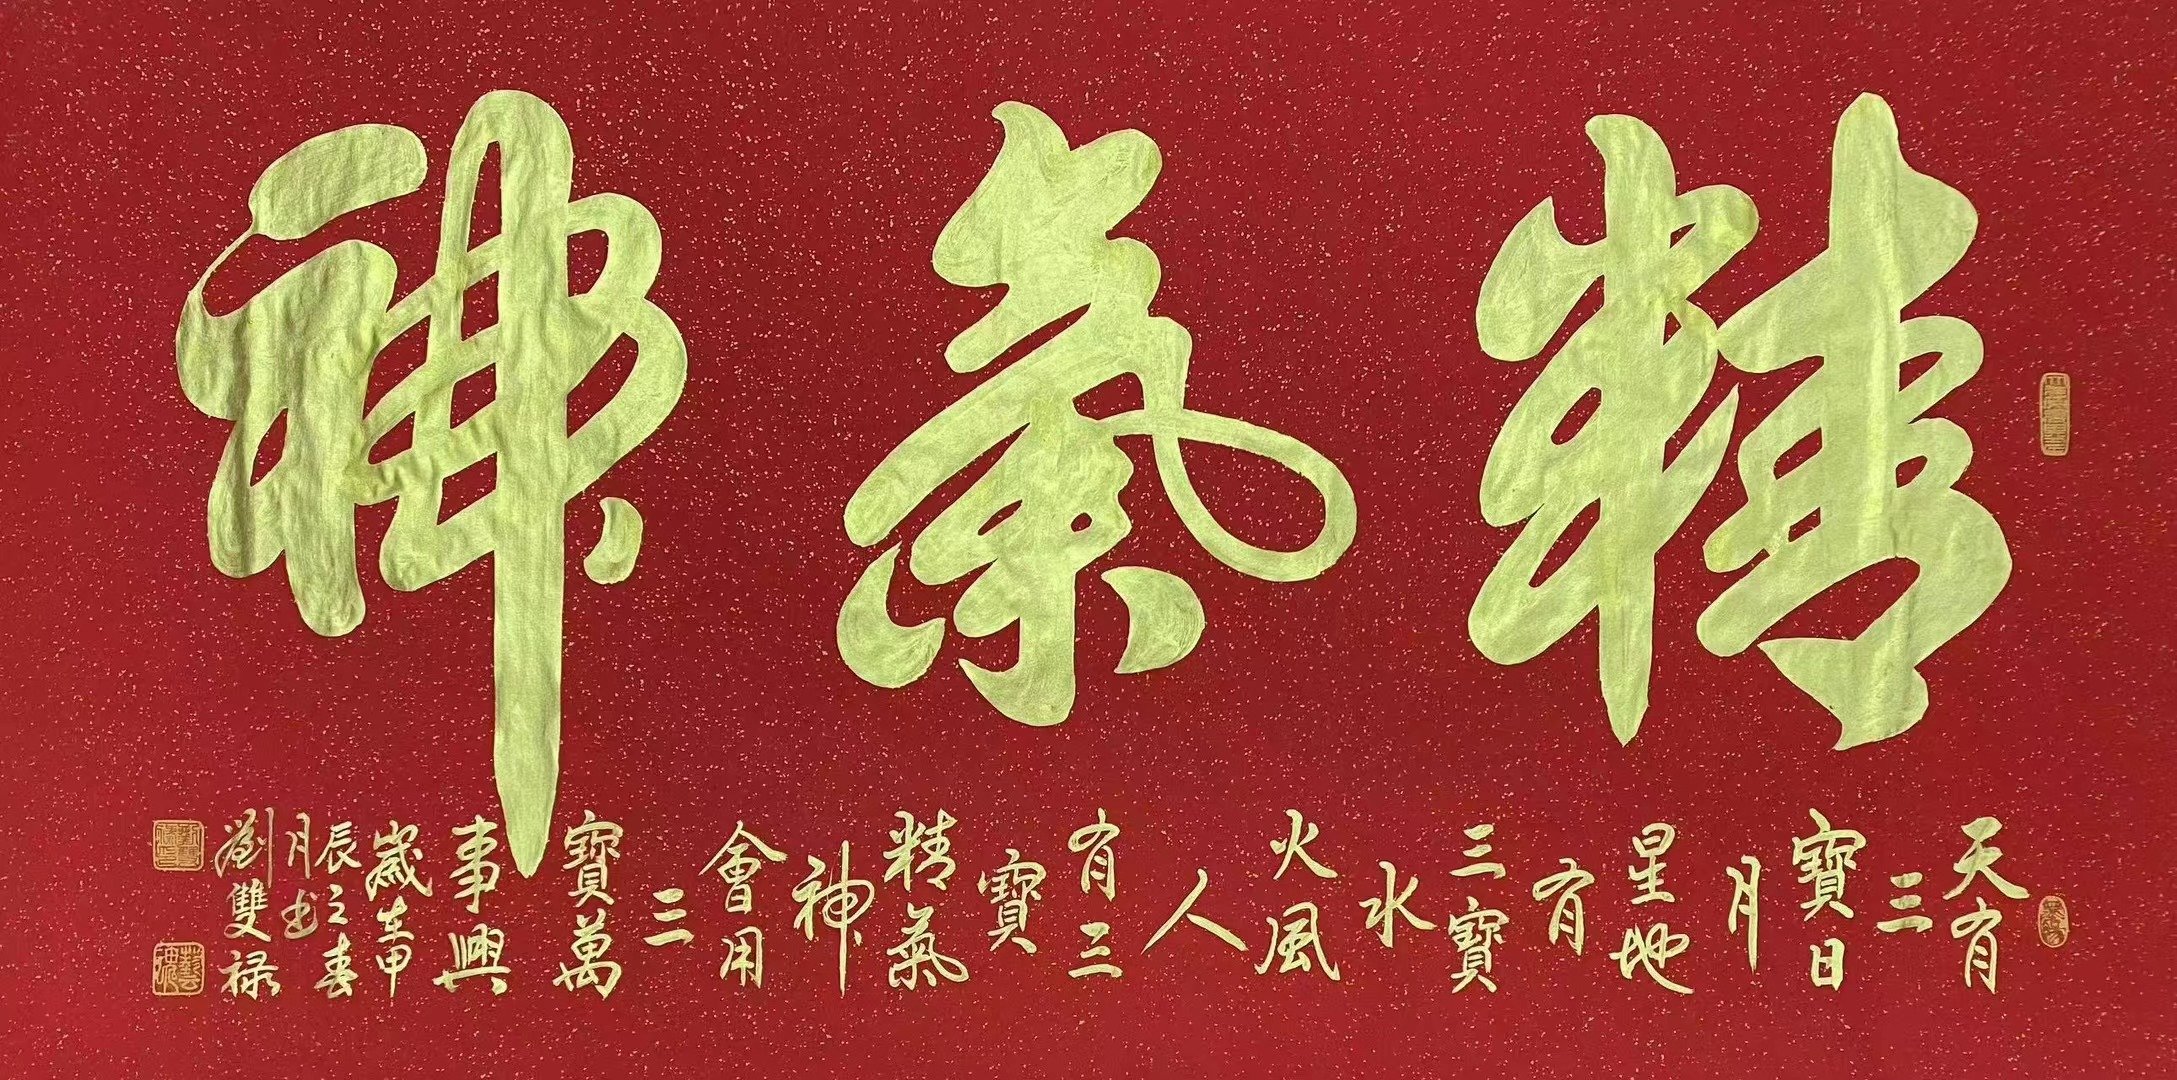 精氣神
天有
三
寶日
月
星地
有
三寶
水
火風
人
有三
寶
精氣
神
會用
三
寶萬
事興
歲在甲
辰之春
月書
劉雙祿